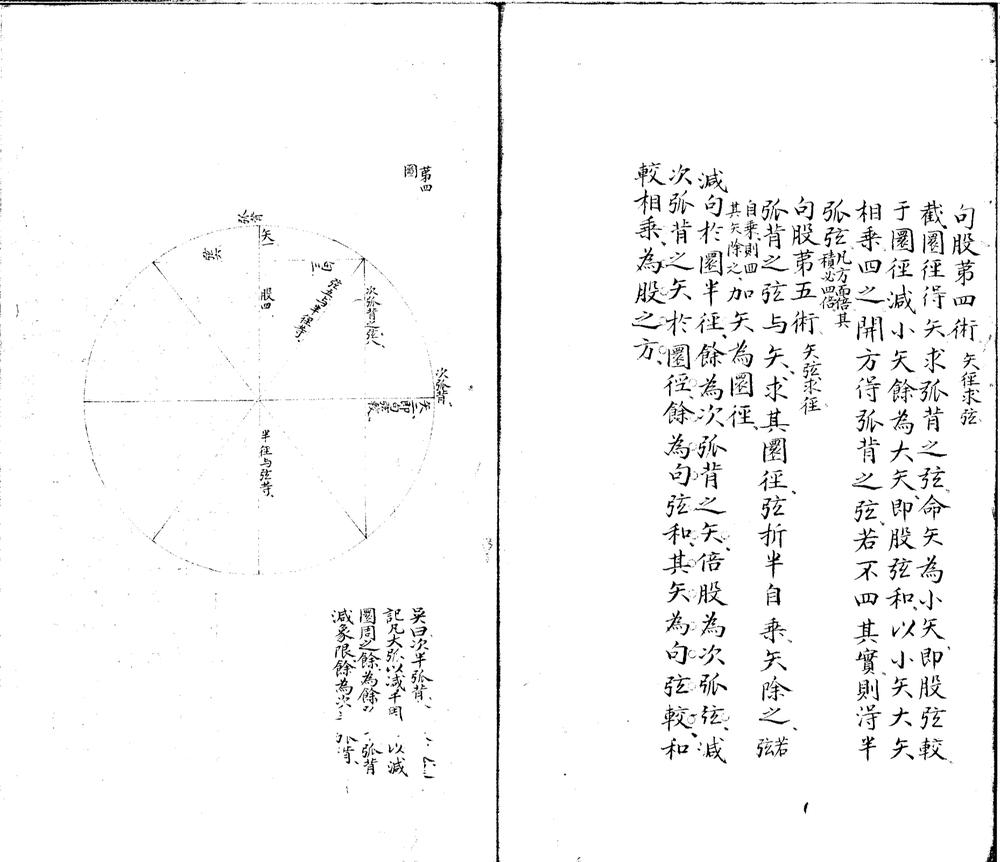 句股第四術 矢徑求弦
截圜徑得矢求弧背之弦命矢為小矢即股弦較
于圜徑減小矢餘為大矢即股弦和以小矢大矢
相乗四之開方得弧背之弦若不四其實則得半
弧弦凡方面倍其積必四倍
句股第五術 矢弦求徑
弧背之弦与矢求其圜徑弦折半自乗矢除之若弦
自乗則四其矢除之加矢為圜徑
減句於圜半徑餘為次弧背之矢倍股為次弧弦減
次弧背之矢於圜徑餘為句弦和其矢為句弦較和
較相乗為股之方
第四
圖
弧背
矢一
弧弦
句三
股四
弦五与半徑等
次弧背之弦八
次弧背
矢二即句弦較
半徑与弦等
吴曰次半弧背
記凡大弧以減半周 以減
圜周之餘為餘 弧背
減象限餘為次 弧背